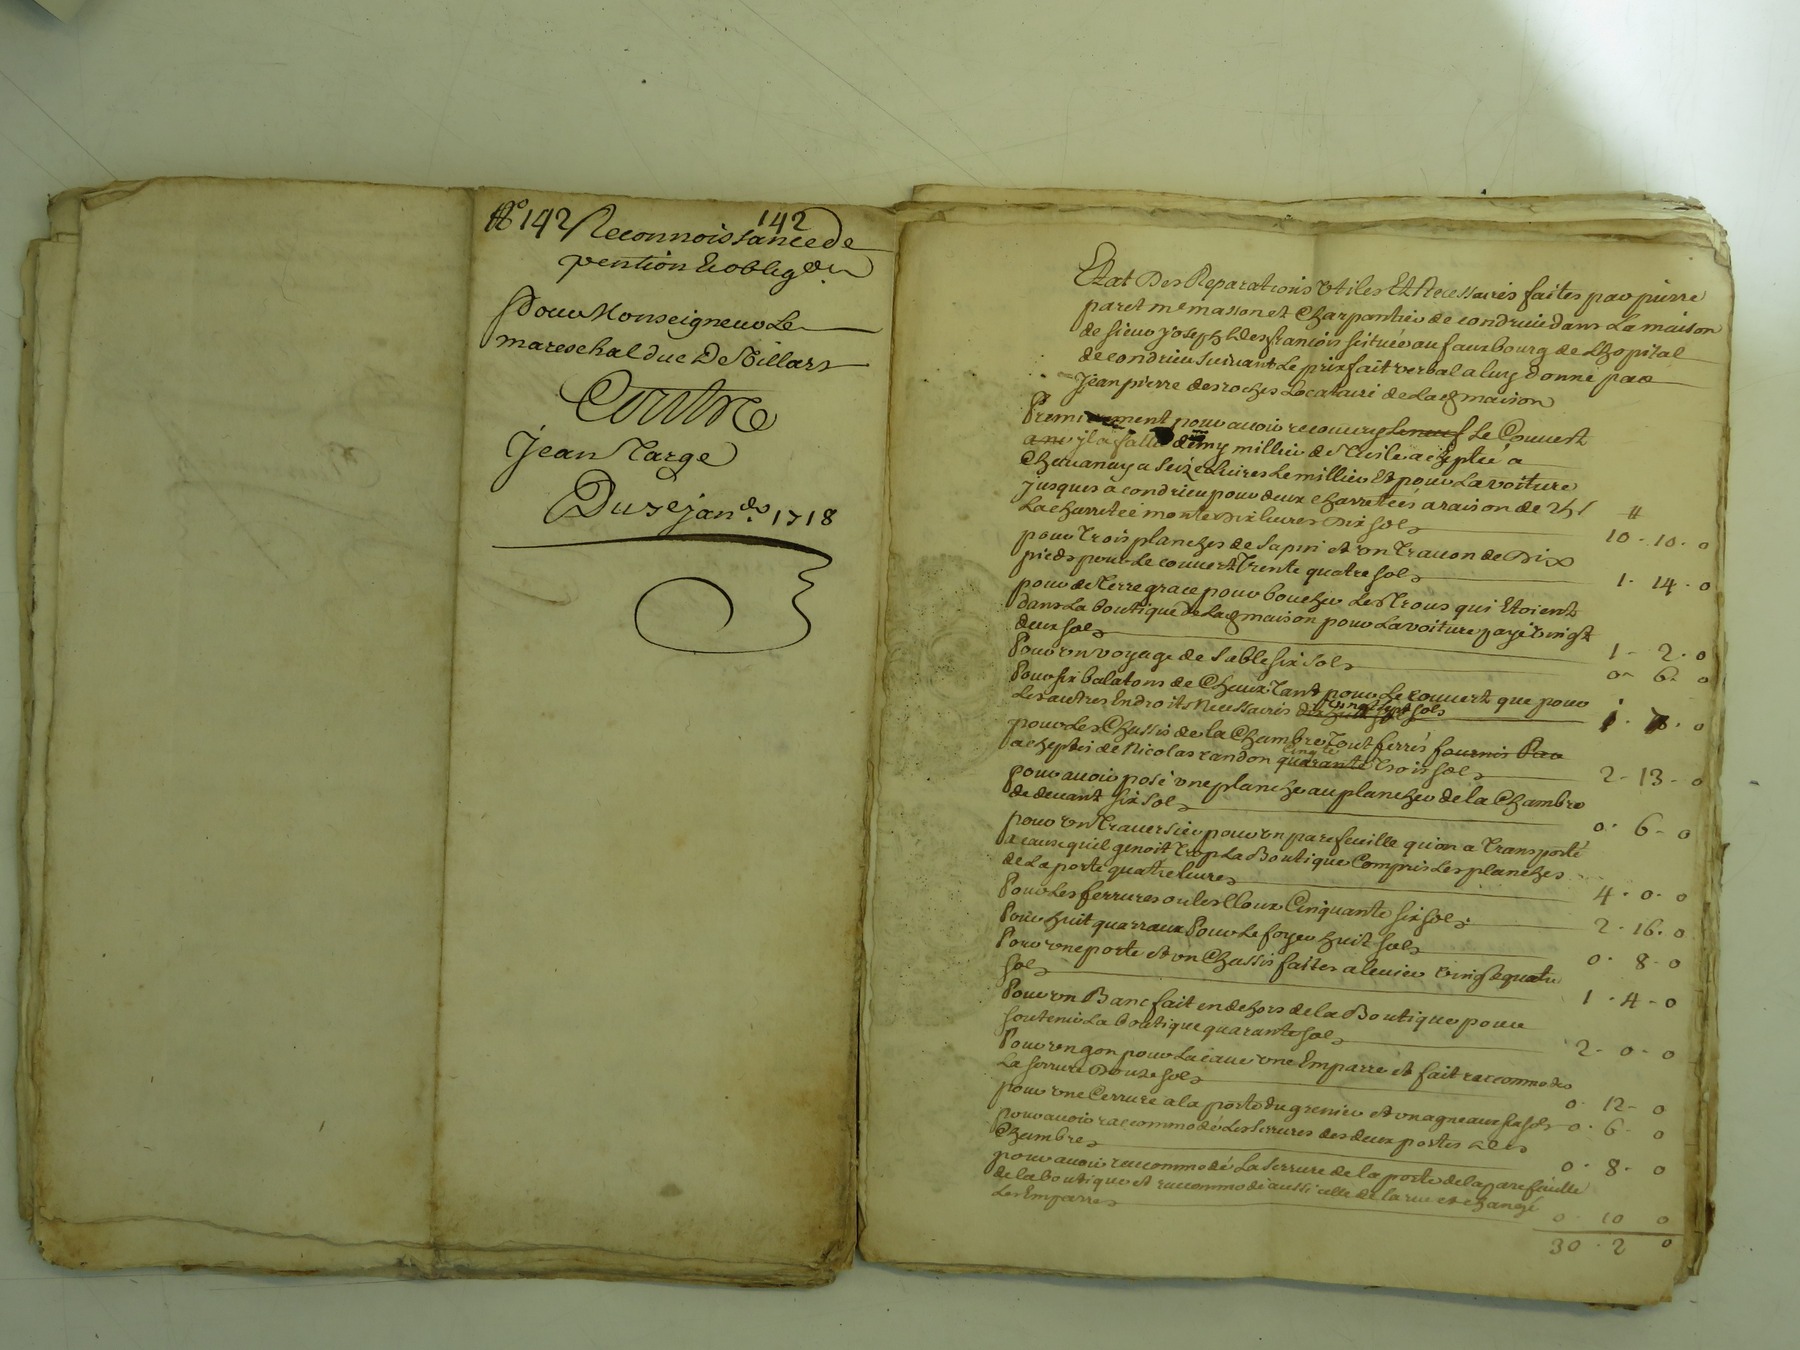 No 142 142
Reconnoissance de
pention & obligaon
Pour Monseigneur Le
mareschal duc De Villars
Contre
Jean Targe
Du 5e janer 1718
Etat Des Reparations Utiles Et Necessaires faites par pierre
paret me masson et Charpentier de condrieu dans La maison
de sieur Joseph Desfrancois scituée au fauxbourg de Lhopital
de condrieu suivant Le prixfait verbal a luy donné par
Jean pierre desroches Locataire de Lad maison
Premierement pour avoir recouvry Le Couvert
il a fallu demy millier de Tuile acheptée a
Chavanay a Seize Livres Le millier Et pour La voiture
jusques a condrieu pour deux charretées a raison de
La charretée monte Dix livres Dix sols 10 - 10 - 0
pour Trois planches de Sapin et un Travon de Dix
pieds pour Le couvert Trente quatre sols 1 - 14 - 0
pour de Terre grace pour boucher Les Trous qui Etoient
dans La boutique de Lad maison pour La voiture payé vingt
deux sols 1 - 2 - 0
Pour un voyage de Sable six sols 0 - 6 - 0
Pour six balatons de Chaux Tant pour Le couvert que pour
Les autres Endroits Necessaires vingt sept sols 1 - 7 - 0
pour Les Chassis de la Chambre Tout ferrés fournis Par
acheptés de Nicolas randon quarante cinq te Trois sols 2 - 13 - 0
pour avoir posé une planche au plancher de la Chambre
de devant six sols 0 - 6 - 0
pour un Traversier pour un parefeuille qu'on a Transporté
a cause qu'il genoit Trop La Boutique Compris Les planches
de La porte quatre livres 4 - 0 - 0
Pour Les ferrures ou les Cloux Cinquante six sols 2 - 16 - 0
Pour huit quarraux Pour Le foyer huit sols 0 - 8 - 0
Pour une porte et un Chassis faites a levier vingt quatre
sols 1 - 4 - 0
Pour un Banc fait en dehors de la Boutique pour
soutenir La boutique quarante sols 2 - 0 - 0
Pour un gon pour La cave une Emparre et fait raccommoder
La serrure Douze sols 0 - 12 - 0
pour une Cerrure a la porte du grenier et un agneaux six sols 0 - 6 - 0
pour avoir raccommodé Les serrures des deux portes des
Chambres 0 - 8 - 0
pour avoir raccommodé La Serrure de la porte de la parefeuille
de la boutique et raccommodé aussi celle de la rue et changé
Les Emparres 0 10 0
30 - 2 0